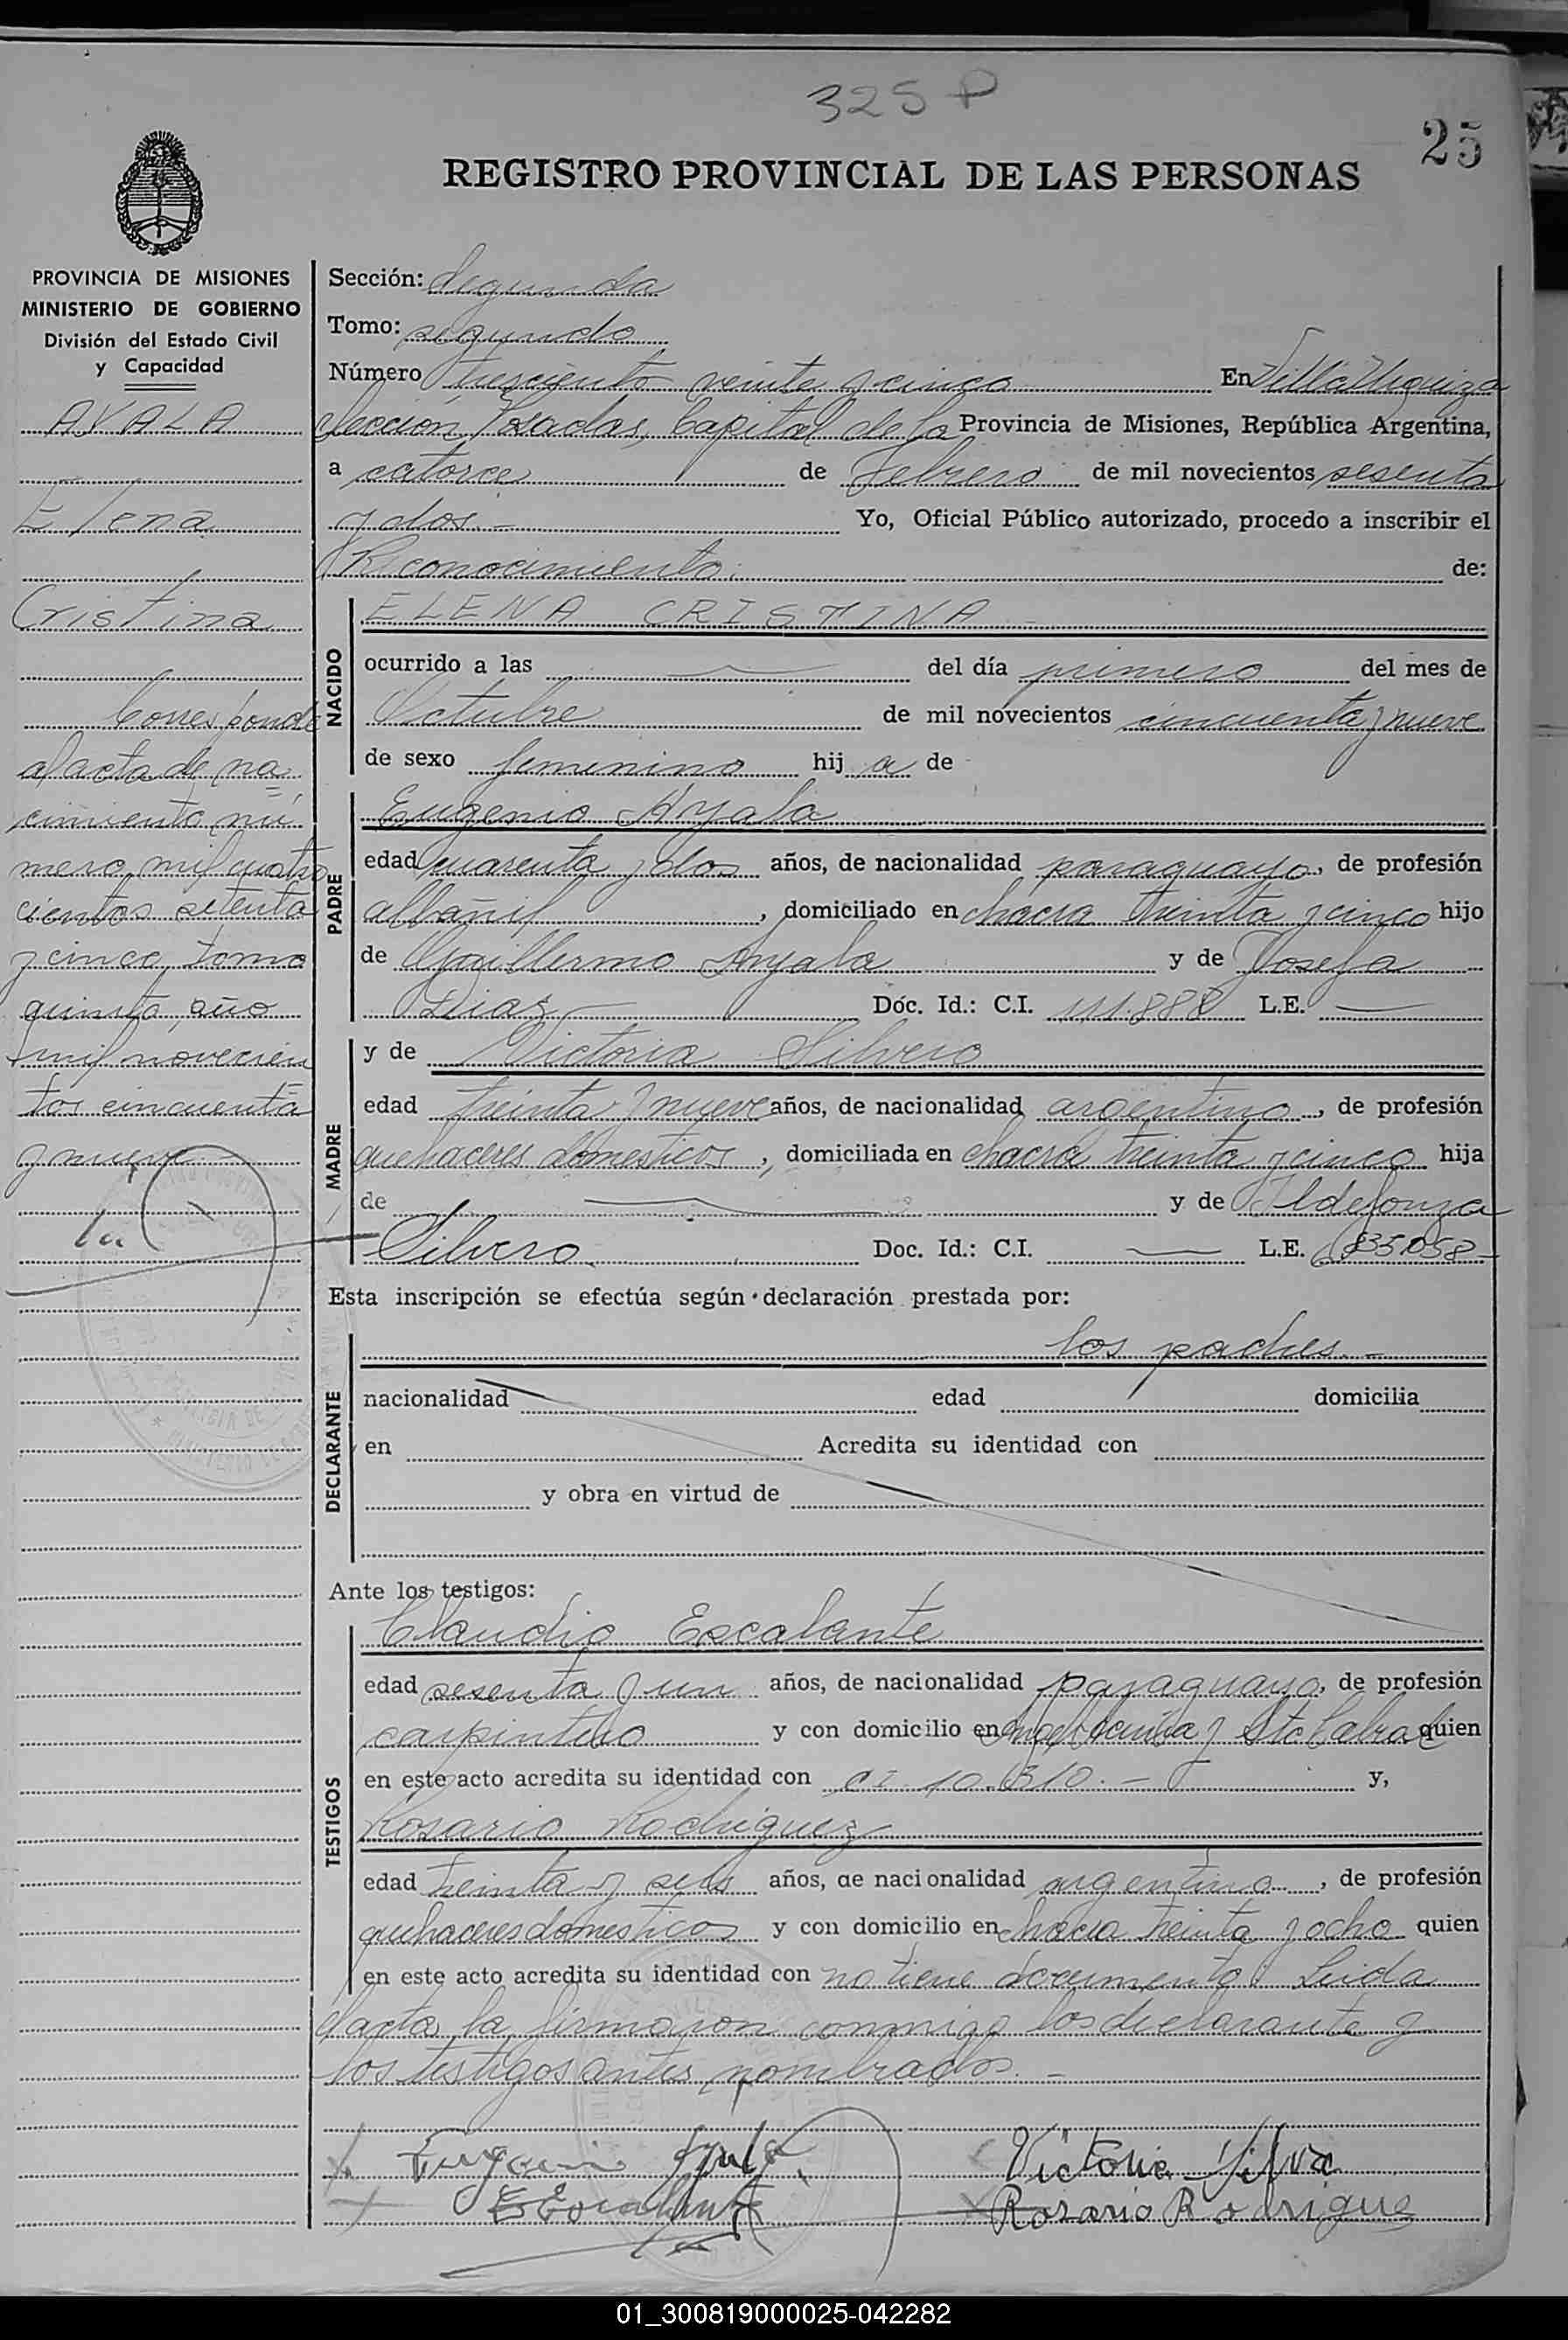 325 P
25
REGISTRO PROVINCIAL DE LAS PERSONAS
PROVINCIA DE MISIONES
MINISTERIO DE GOBIERNO
División del Estado Civil
y Capacidad
AYALA
Elena
Cristina
Corresponde
al acta de na
cimiento nú
mero mil cuatro
cientos setenta
y cinco, tomo
quinto, año
mil novecien
tos cincuenta
y nueve
Sección: Segunda
Tomo: segundo
Número trescientos veinte y cinco En Villa Urquiza
Sección, Posadas, Capital de la Provincia de Misiones, República Argentina,
a catorce de Febrero de mil novecientos sesenta
y dos.- Yo, Oficial Público autorizado, procedo a inscribir el
Reconocimiento de:
NACIDO
ELENA CRISTINA
ocurrido a las — del día primero del mes de
Octubre de mil novecientos cincuenta y nueve
de sexo femenino hij a de
PADRE
Eugenio Ayala
edad cuarenta y dos años, de nacionalidad paraguayo, de profesión
albañil, domiciliado en chacra treinta y cinco hijo
de Guillermo Ayala y de Josefa
Diaz Doc. Id.: C.I. 111.888 L.E. —
MADRE
y de Victoria Silvero
edad treinta y nueve años, de nacionalidad argentina, de profesión
quehaceres domesticos, domiciliada en chacra treinta y cinco hija
de — y de Ildefonza
Silvero Doc. Id.: C.I. — L.E.
Esta inscripción se efectúa según declaración prestada por:
DECLARANTE
los padres.-
nacionalidad edad domicilia
en Acredita su identidad con
y obra en virtud de
Ante los testigos:
TESTIGOS
Claudio Escalante
edad sesenta y un años, de nacionalidad paraguayo, de profesión
carpintero y con domicilio en y Sto Cabral quien
en este acto acredita su identidad con CI 10.310.- y,
Rosario Rodriguez
edad treinta y seis años, de nacionalidad argentina, de profesión
quehaceres domesticos y con domicilio en chacra treinta y ocho quien
en este acto acredita su identidad con no tiene documento. Leida
el acta, la firmaron conmigo los declarante y
los testigos antes nombrados.-
Eugenio Ayala Victoria Silvero
Escalante Rosario Rodrigue
01_300819000025-042282